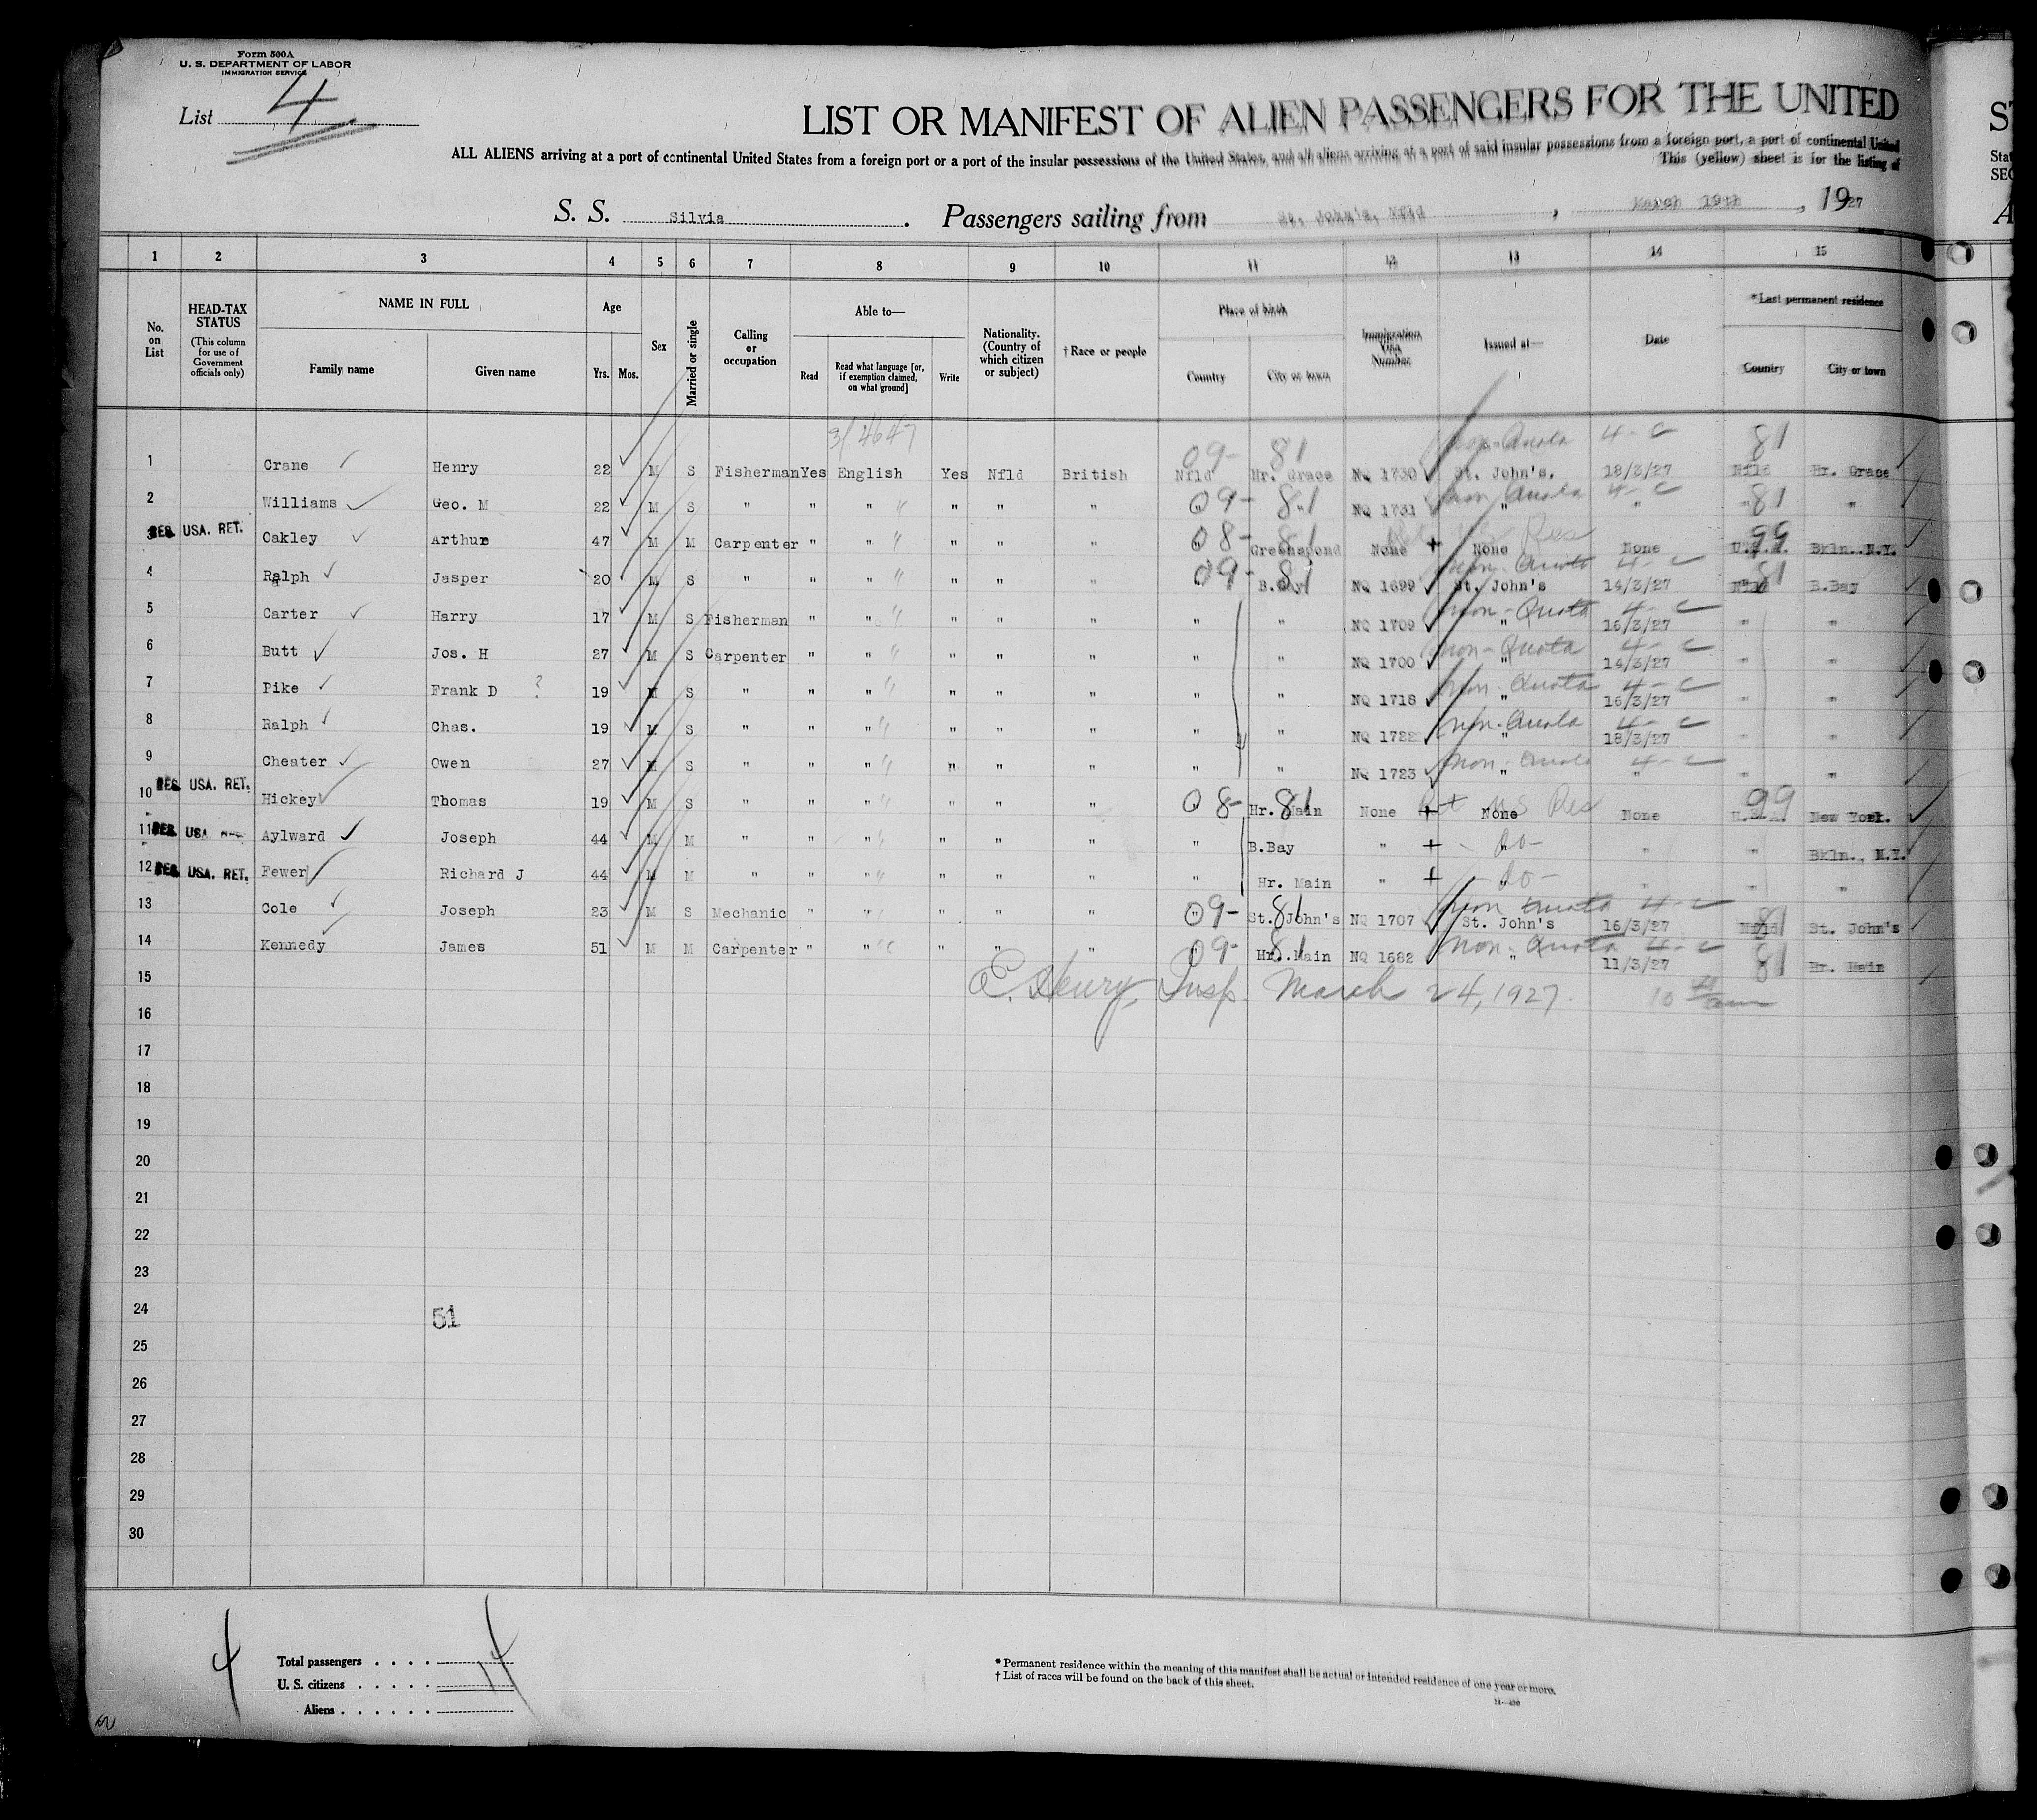 Form 500A
U. S. DEPARTMENT OF LABOR
IMMIGRATION SERVICE
List 4
LIST OR MANIFEST OF ALIEN PASSENGERS FOR THE UNITED
ALL ALIENS arriving at a port of continental United States from a foreign port or a port of the insular possessions of the United States, and all aliens arriving at a port of said insular possessions from a foreign port, a port of continental United
This (yellow) sheet is for the listing of
S. S. Silvia. Passengers sailing from St. John's, Nfld, March 19th, 1927
1 2 3 4 5 6 7 8 9 10 11 12 13 14 15
No. on List
HEAD-TAX STATUS
(This column for use of Government officials only)
NAME IN FULL
Family name Given name
Age
Yrs. Mos.
Sex
Married or single
Calling or occupation
Able to—
Read Read what language [or, if exemption claimed, on what ground] Write
Nationality. (Country of which citizen or subject)
† Race or people
Place of birth
Country City or town
Immigration Visa Number
Issued at—
Date
* Last permanent residence
Country City or town
3/4647
09- 81 Non-Quota 4-C 81
1 Crane Henry 22 M S Fisherman Yes English Yes Nfld British Nfld Hr. Grace NQ 1730 St. John's, 18/3/27 Nfld Hr. Grace
09- 81 Non Quota 4-C 81
2 Williams Geo. M 22 M S " " " " " " " " NQ 1731 " " " "
08- 81 Res 99
3 USA. RET. Oakley Arthur 47 M M Carpenter " " " " " " Greenspond None + None None U.S.A. Bkln..N.Y.
09- 81 Non-Quota 4-C 81
4 Ralph Jasper 20 M S " " " " " " " B.Bay NQ 1699 St. John's 14/3/27 Nfld B.Bay
Non-Quota 4-C
5 Carter Harry 17 M S Fisherman " " " " " " " NQ 1709 " 16/3/27 " "
Non-Quota 4-C
6 Butt Jos. H 27 M S Carpenter " " " " " " " NQ 1700 " 14/3/27 " "
Non-Quota 4-C
7 Pike Frank D ? 19 M S " " " " " " " " NQ 1718 " 16/3/27 " "
Non-Quota 4-C
8 Ralph Chas. 19 M S " " " " " " " " NQ 1722 " 18/3/27 " "
Non-Quota 4-C
9 Cheater Owen 27 M S " " " " " " " " NQ 1723 " " " "
08- 81 US Res 99
10 RES. USA. RET. Hickey Thomas 19 M S " " " " " " " Hr. Main None + None None U.S.A. New York.
11 RES. USA. Aylward Joseph 44 M M " " " " " " " B.Bay " + -do- " " Bkln., N.Y.
12 RES. USA. RET. Fewer Richard J 44 M M " " " " " " " Hr. Main " + -do- " " "
09- 81 Non Quota 4-C 81
13 Cole Joseph 23 M S Mechanic " " " " " " St. John's NQ 1707 St. John's 16/3/27 Nfld St. John's
09- 81 Non-Quota 4-C 81
14 Kennedy James 51 M M Carpenter " " " " " " Hr. Main NQ 1682 " 11/3/27 Hr. Main
15 E. Henry, Insp. March 24, 1927. 10 am
16
17
18
19
20
21
22
23
24 51
25
26
27
28
29
30
4
Total passengers . . . . 14
U. S. citizens . . . . .
Aliens . . . . . .
* Permanent residence within the meaning of this manifest shall be actual or intended residence of one year or more.
† List of races will be found on the back of this sheet.